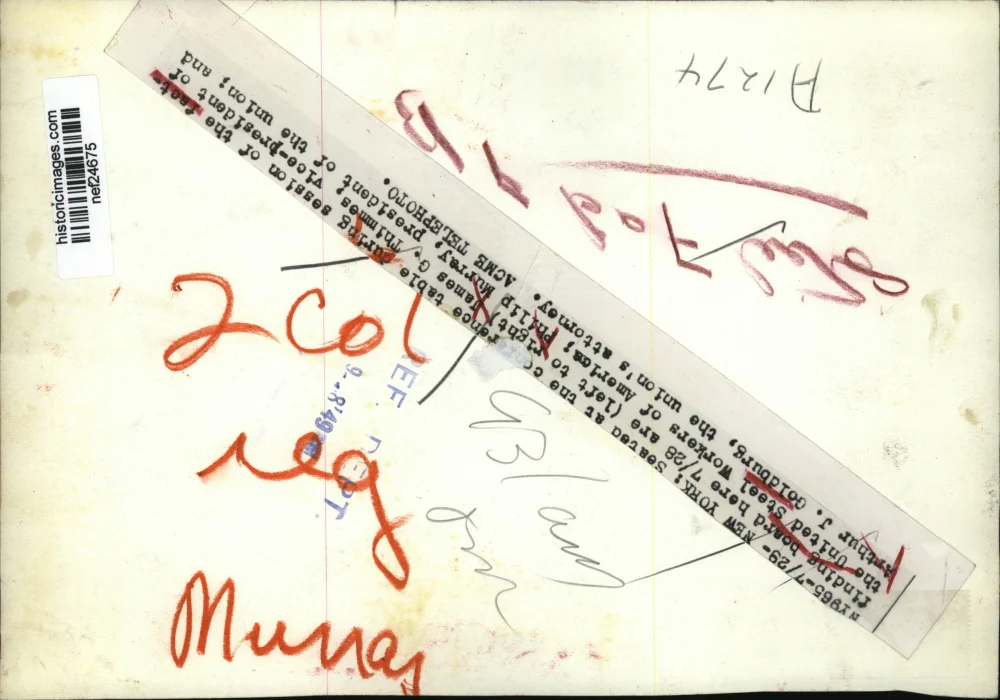 historicimages.com
nef24675
A1274
NY965-7/29-NEW YORK: Seated at the rence table during session of the fact-
finding board here 7/28 are (left to right) James G. Thimmes, vice-president of
the United Steel Workers of America; Philip Murray, president of the union; and
Arthur J. Goldburg, the union's attorney. ACME TELEPHOTO.
2 col
reg
Murray
REF. DEPT.